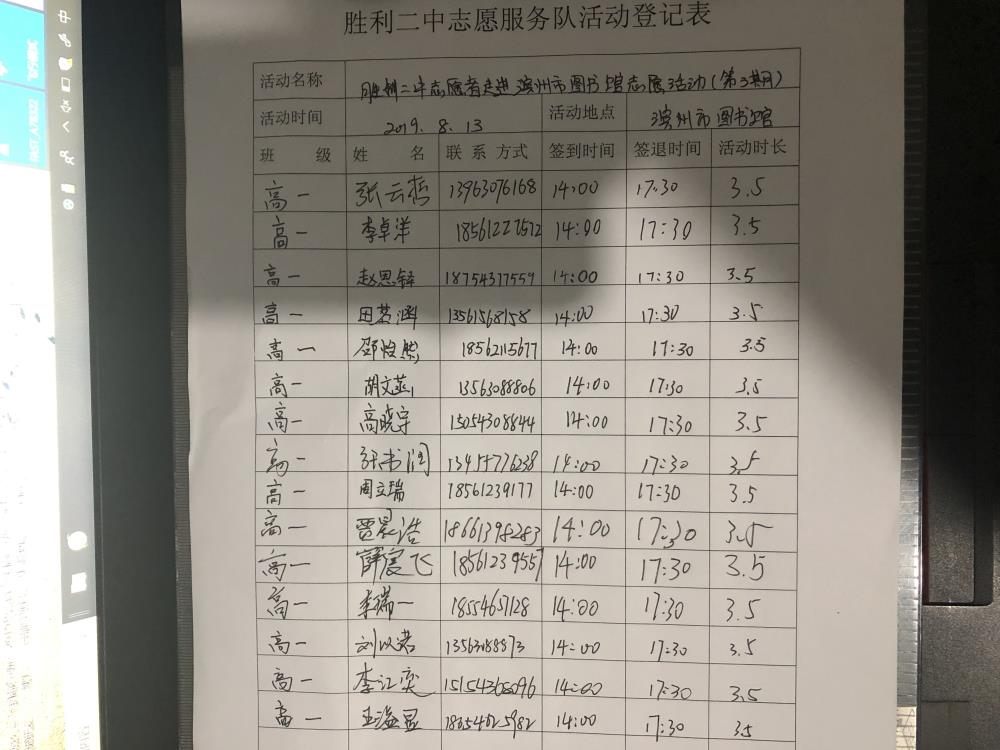 胜利二中志愿服务队活动登记表
活动名称 胜利二中志愿者走进滨州市图书馆志愿活动(第3期)
活动时间 2019.8.13 活动地点 滨州市图书馆
班 级 姓 名 联系方式 签到时间 签退时间 活动时长
高一 张云哲 13963076168 14:00 17:30 3.5
高一 李卓洋 18561227572 14:00 17:30 3.5
高一 赵思铎 18754377559 14:00 17:30 3.5
高一 田茗涵 13561568158 14:00 17:30 3.5
高一 邵牧熙 18562115677 14:00 17:30 3.5
高一 胡文 13563088806 14:00 17:30 3.5
高一 高晓宇 15054308844 14:00 17:30 3.5
高一 张书润 14:00 17:30 3.5
高一 周立瑞 18561239177 14:00 17:30 3.5
高一 贾晨浩 18661398283 14:00 17:30 3.5
高一 薛宸飞 18561239557 14:00 17:30 3.5
高一 李瑞一 18554657128 14:00 17:30 3.5
高一 刘以诺 13563188873 14:00 17:30 3.5
高一 李江奕 15154365096 14:00 17:30 3.5
高一 王溢显 18654625982 14:00 17:30 3.5